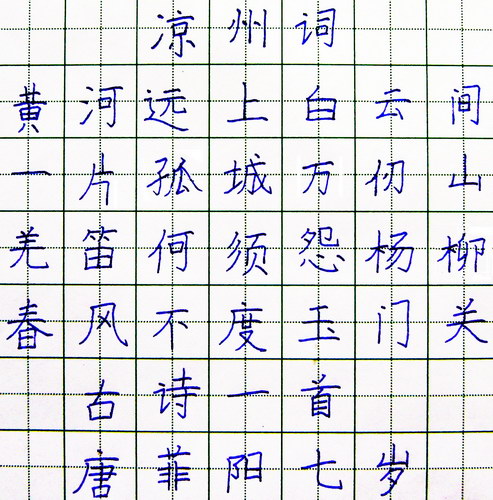 凉州词
黄河远上白云间
一片孤城万仞山
羌笛何须怨杨柳
春风不度玉门关
古诗一首
唐菲阳七岁